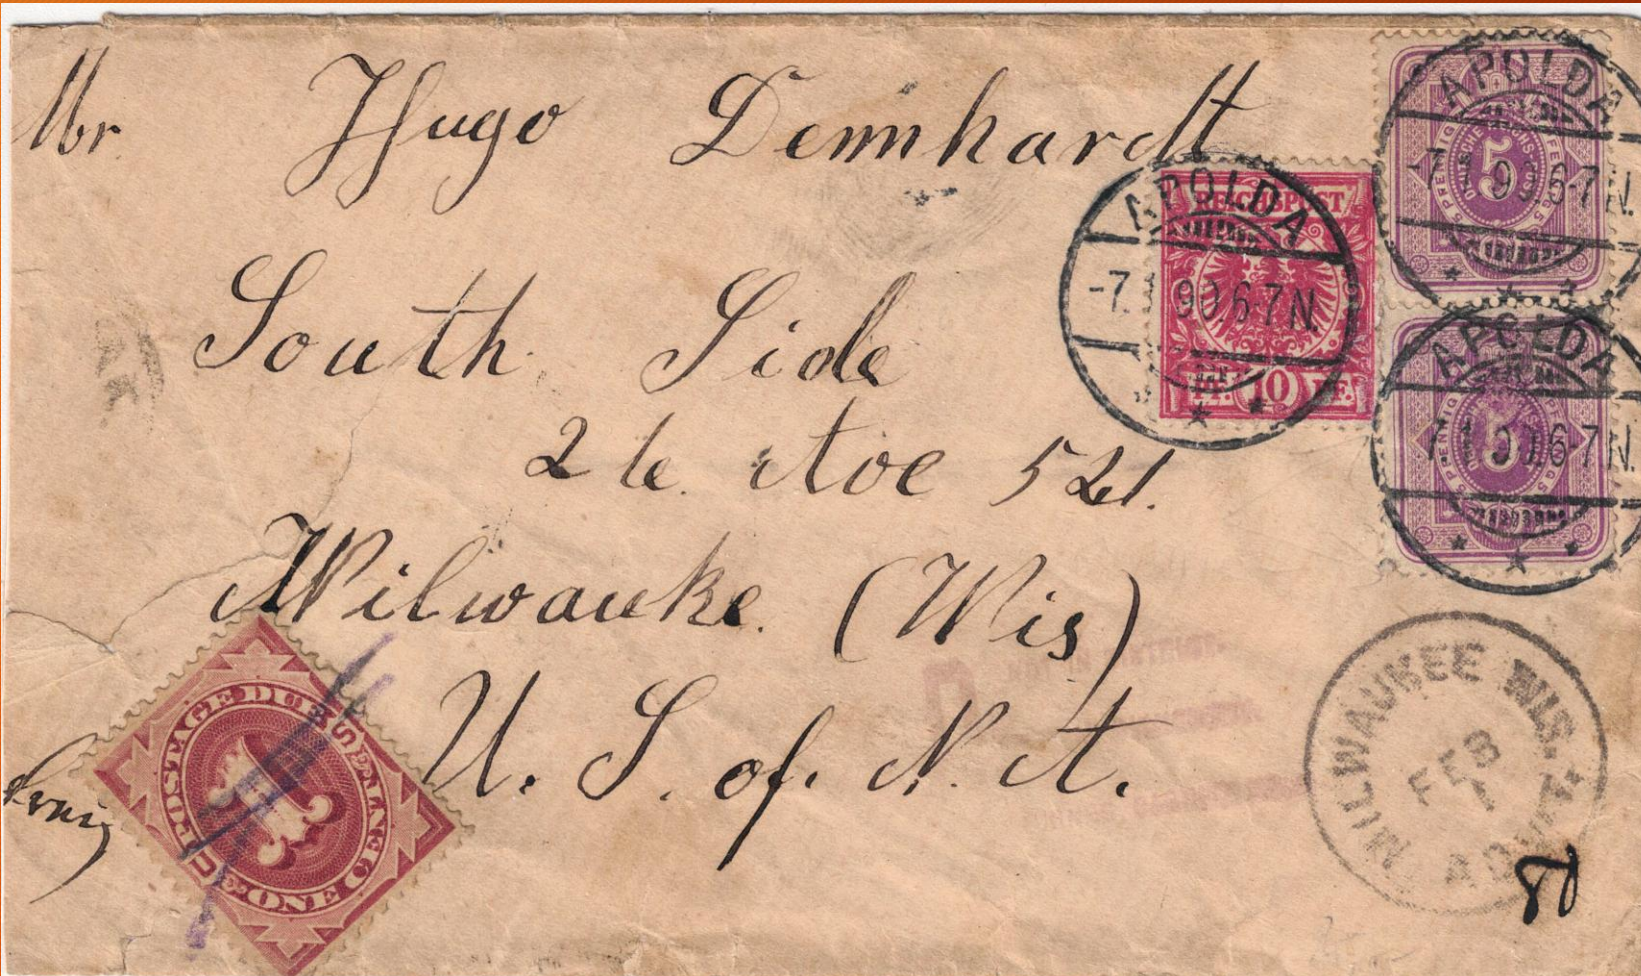 Mr Hugo Dennhardt
South Side
2te. Ave 521.
Milwauke (Wis)
U. S. of. N. A.
APOLDA
-7.1 90.6-7N.
REICHSPOST
PF. 10 PF.
APOLDA
-7. 90.6-7N.
5
APOLDA
7. 90.6-7N.
5
MILWAUKEE WIS.
FEB
1
ADV'D
POSTAGE DUE
ONE CENT
1
U S